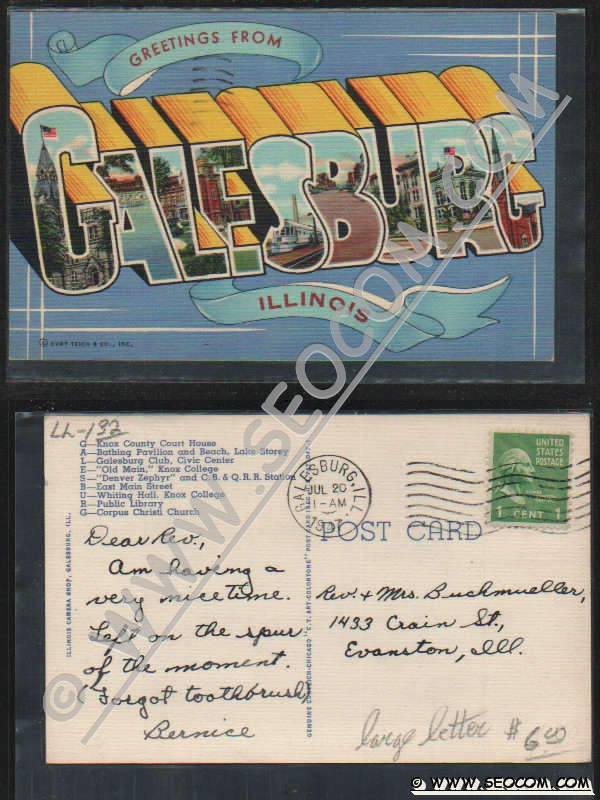 GREETINGS FROM
GALESBURG
ILLINOIS
© CURT TEICH & CO., INC.
© WWW.SEOCOM.COM
LL-132
G—Knox County Court House
A—Bathing Pavilion and Beach, Lake Storey
L—Galesburg Club, Civic Center
E—"Old Main," Knox College
S—"Denver Zephyr" and C. B. & Q. R. R. Station
B—East Main Street
U—Whiting Hall, Knox College
R—Public Library
G—Corpus Christi Church
GALESBURG, ILL.
JUL 20
1-AM
UNITED
STATES
POSTAGE
1 CENT 1
POST CARD
ILLINOIS CAMERA SHOP, GALESBURG, ILL.
GENUINE CURTEICH-CHICAGO "C.T. ART-COLORTONE" POST CARD
Dear Rev.,
Am having a
very nice time.
Left on the spur
of the moment.
(Forgot toothbrush)
Bernice
Rev. + Mrs. Buchmueller,
1433 Crain St.,
Evanston, Ill.
large letter $6.00
© WWW.SEOCOM.COM